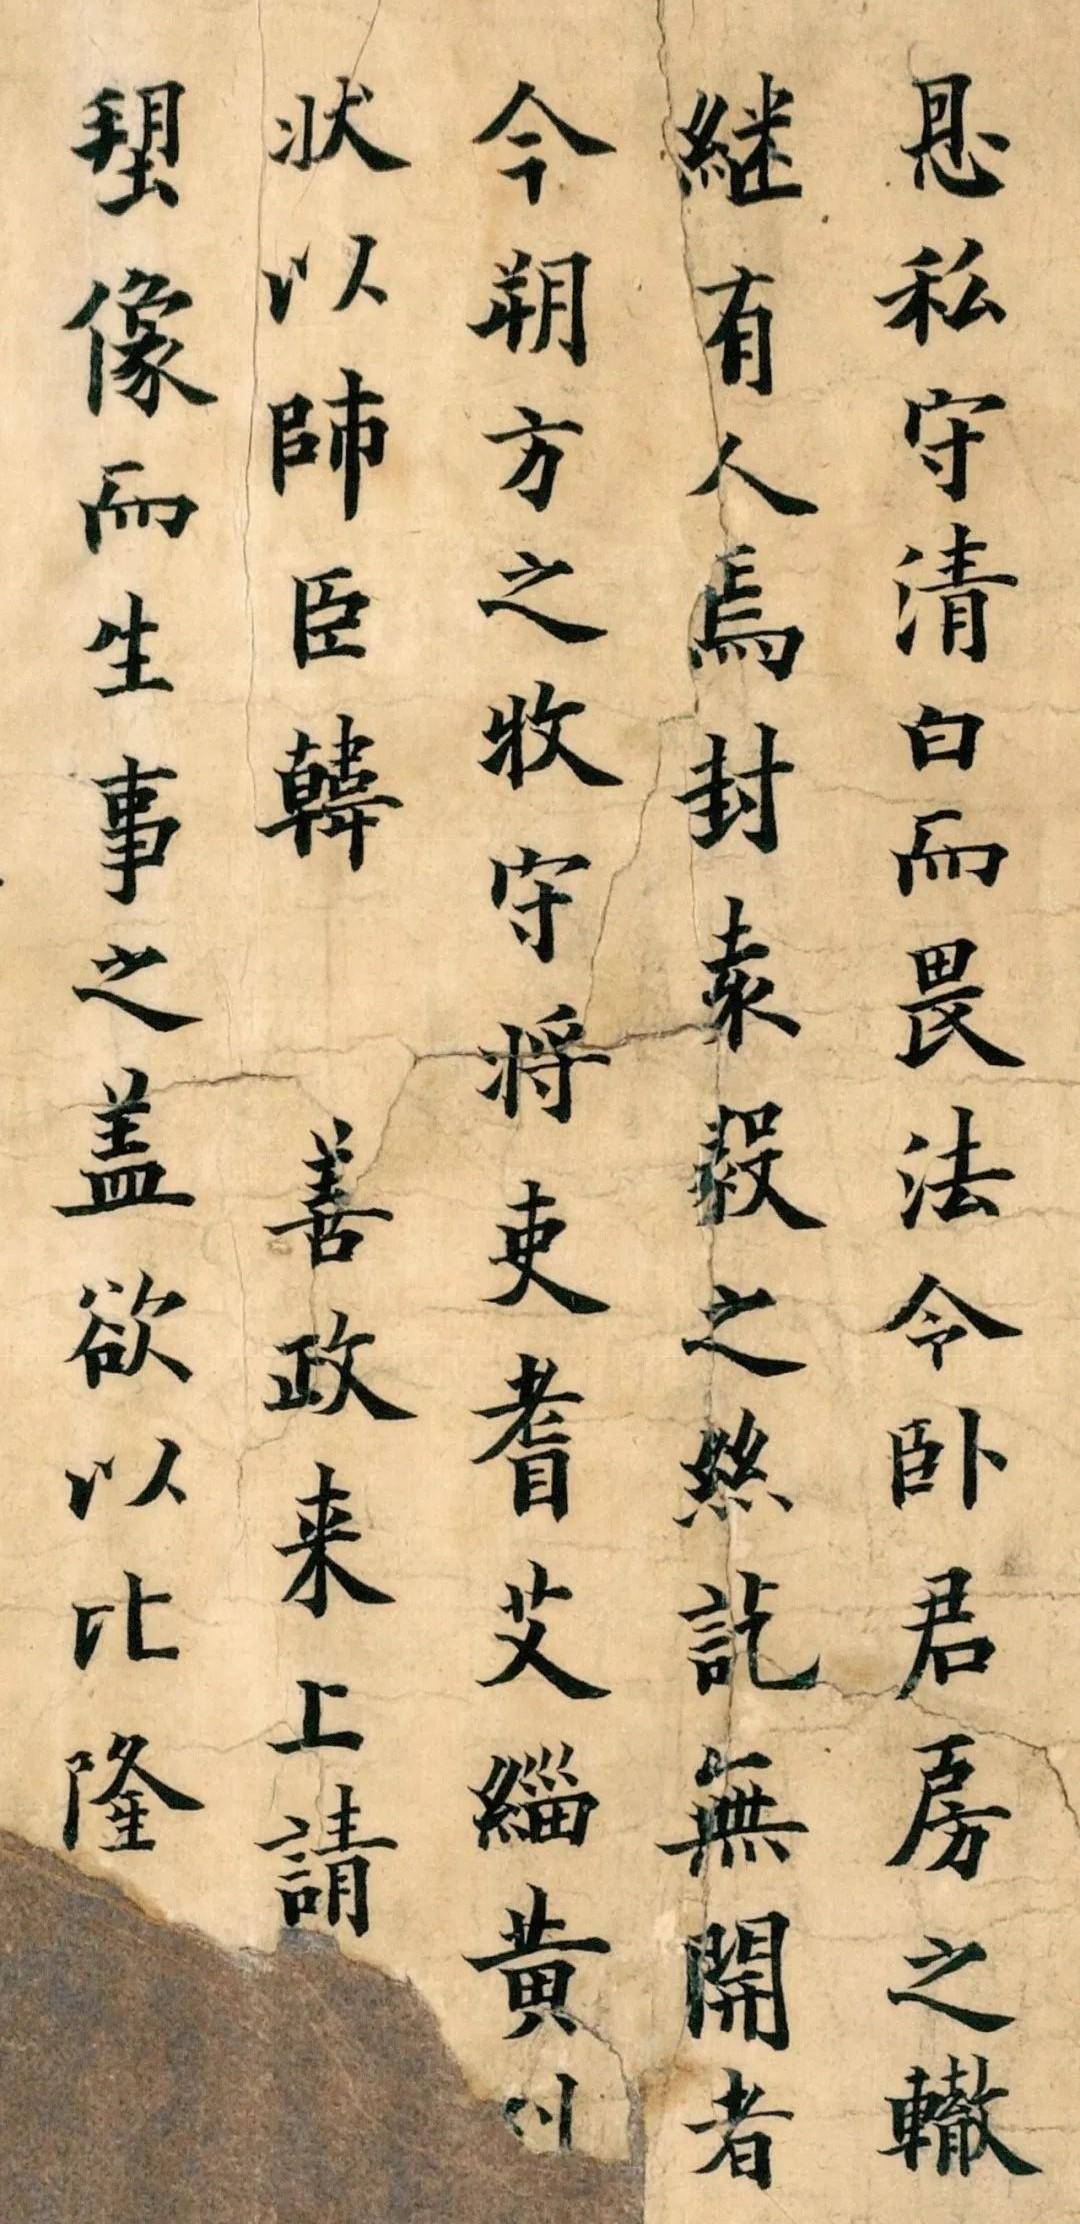 恩私守清白而畏法令卧君房之轍
継有人焉封袁毅之絲訖無開者
今朔方之牧守将吏耆艾緇黄
状以師臣韓 善政来上請
塑像而生事之盖欲以比隆